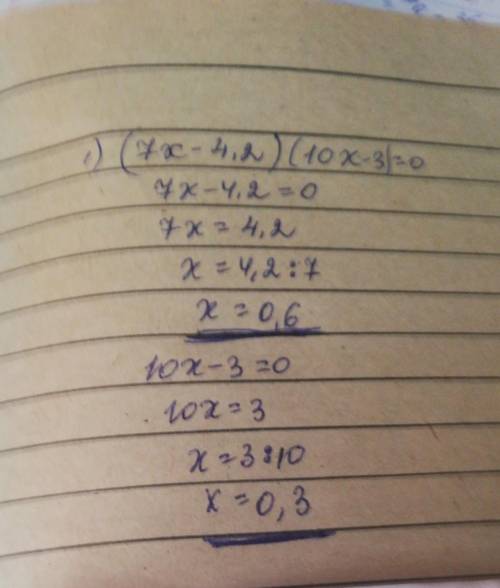 1) (7x-4,2)(10x-3)=0
7x-4,2=0
7x=4,2
x=4,2:7
x=0,6
10x-3=0
10x=3
x=3:10
x=0,3